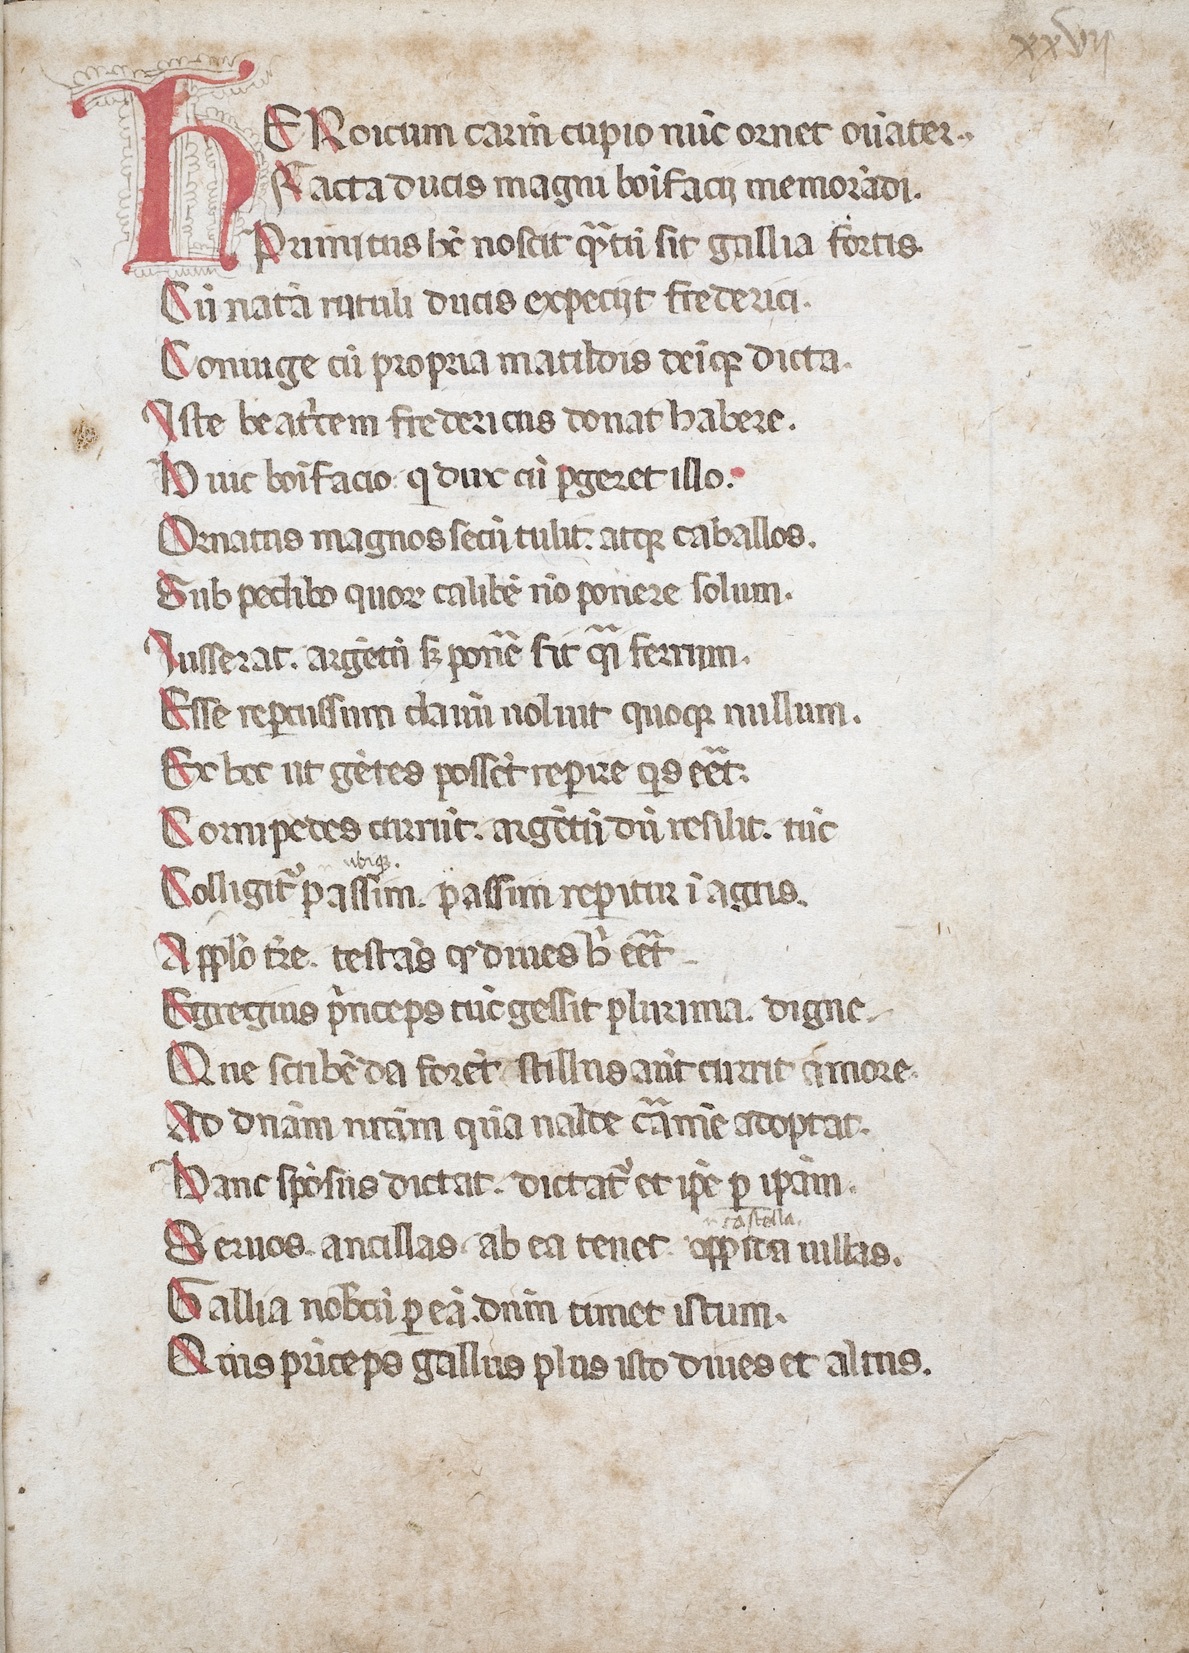 xxvij
HERoicum carm̄ cupio nūc ornet ouāter.
Facta ducis magni boīfacij memorādi.
Primitus hēc noscit q̄tū sit gallia fortis.
Cū natā rutuli ducis expecijt frederici.
Coniuge cū propria matildis deīqꝫ dicta.
Iste beatͥcem fredericus donat habere.
Huic boīfacio. q dux cū ꝑgeret illo.
Ornatus magnos secū tulit. atqꝫ caballos.
Sub pedibꝰ quoꝝ calibē nō ponere solum.
Iusserat. argētū sꝫ ponē sit q̄i ferrum.
Esse reꝑcussum clauū noluit quoqꝫ nullum.
Ex hec ut gētes possēt reꝑire qͥs eēt.
Cornipedes currūt. argētū dū resilit. tūc
ubiqꝫ.
Colligitͬ passim. passim reꝑitur ī agris.
A pplo tͬre. testās qͩ diues hͥ eēt
Egregius pͥnceps tūc gessit plurima. digne.
Que scribēda forēt stillus aūt currit amore.
Ad dnām nrām quia ualde cāmē adoptat.
Hanc spōsus dictat. dictatͬ et ipē ꝑ ipām.
castella.
Seruos. ancillas. ab ea tenet. oppida uillas.
Gallia nob̄cū ꝑ eā. dnm̄ timet istum.
Quis pͥnceps gallus plus isto diues et altus.